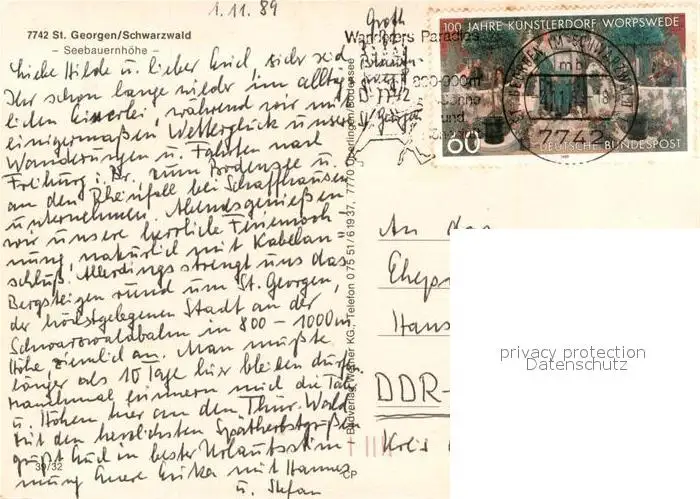 1.11.89
7742 St. Georgen/Schwarzwald
– Seebauernhöhe –
Liebe Hilde u. lieber Erich, sicher seid
Ihr schon lange wieder im alltäg-
lichen Einerlei, während wir mit
einigermaßen Wetterglück unsere
Wanderungen u. Fahrten nach
Freiburg i. Br., zum Bodensee u.
an den Rheinfall bei Schaffhausen
unternehmen. Abends genießen
wir unsere herrliche Ferienwoh-
nung, natürlich mit Kabelan-
schluß. Allerdings strengt uns das
Bergsteigen rund um St. Georgen,
der höchstgelegenen Stadt an der
Schwarzwaldbahn in 800 – 1000 m
Höhe, ziemlich an. Man müßte
länger als 10 Tage hier bleiben dürfen.
Manchmal erinnern mich die Täler
u. Höhen hier an den Thür. Wald.
Mit den herzlichsten Spätherbstgrüßen
grüßt Euch in bester Urlaubsstim-
mung Eure Erika mit Hannes
u. Stefan
39/32
Groth
D-7742
St. Georgen
Wanderers Paradies
und
100 JAHRE KÜNSTLERDORF WORPSWEDE
60
DEUTSCHE BUNDESPOST
ST. GEORGEN IM SCHWARZWALD
mb
7742
Bildverlag Werner KG., Telefon 0 75 51/6 19 37, 7770 Überlingen/Bodensee
CP
An das
Ehep
Hans
DDR-
Kreis
privacy protection
Datenschutz